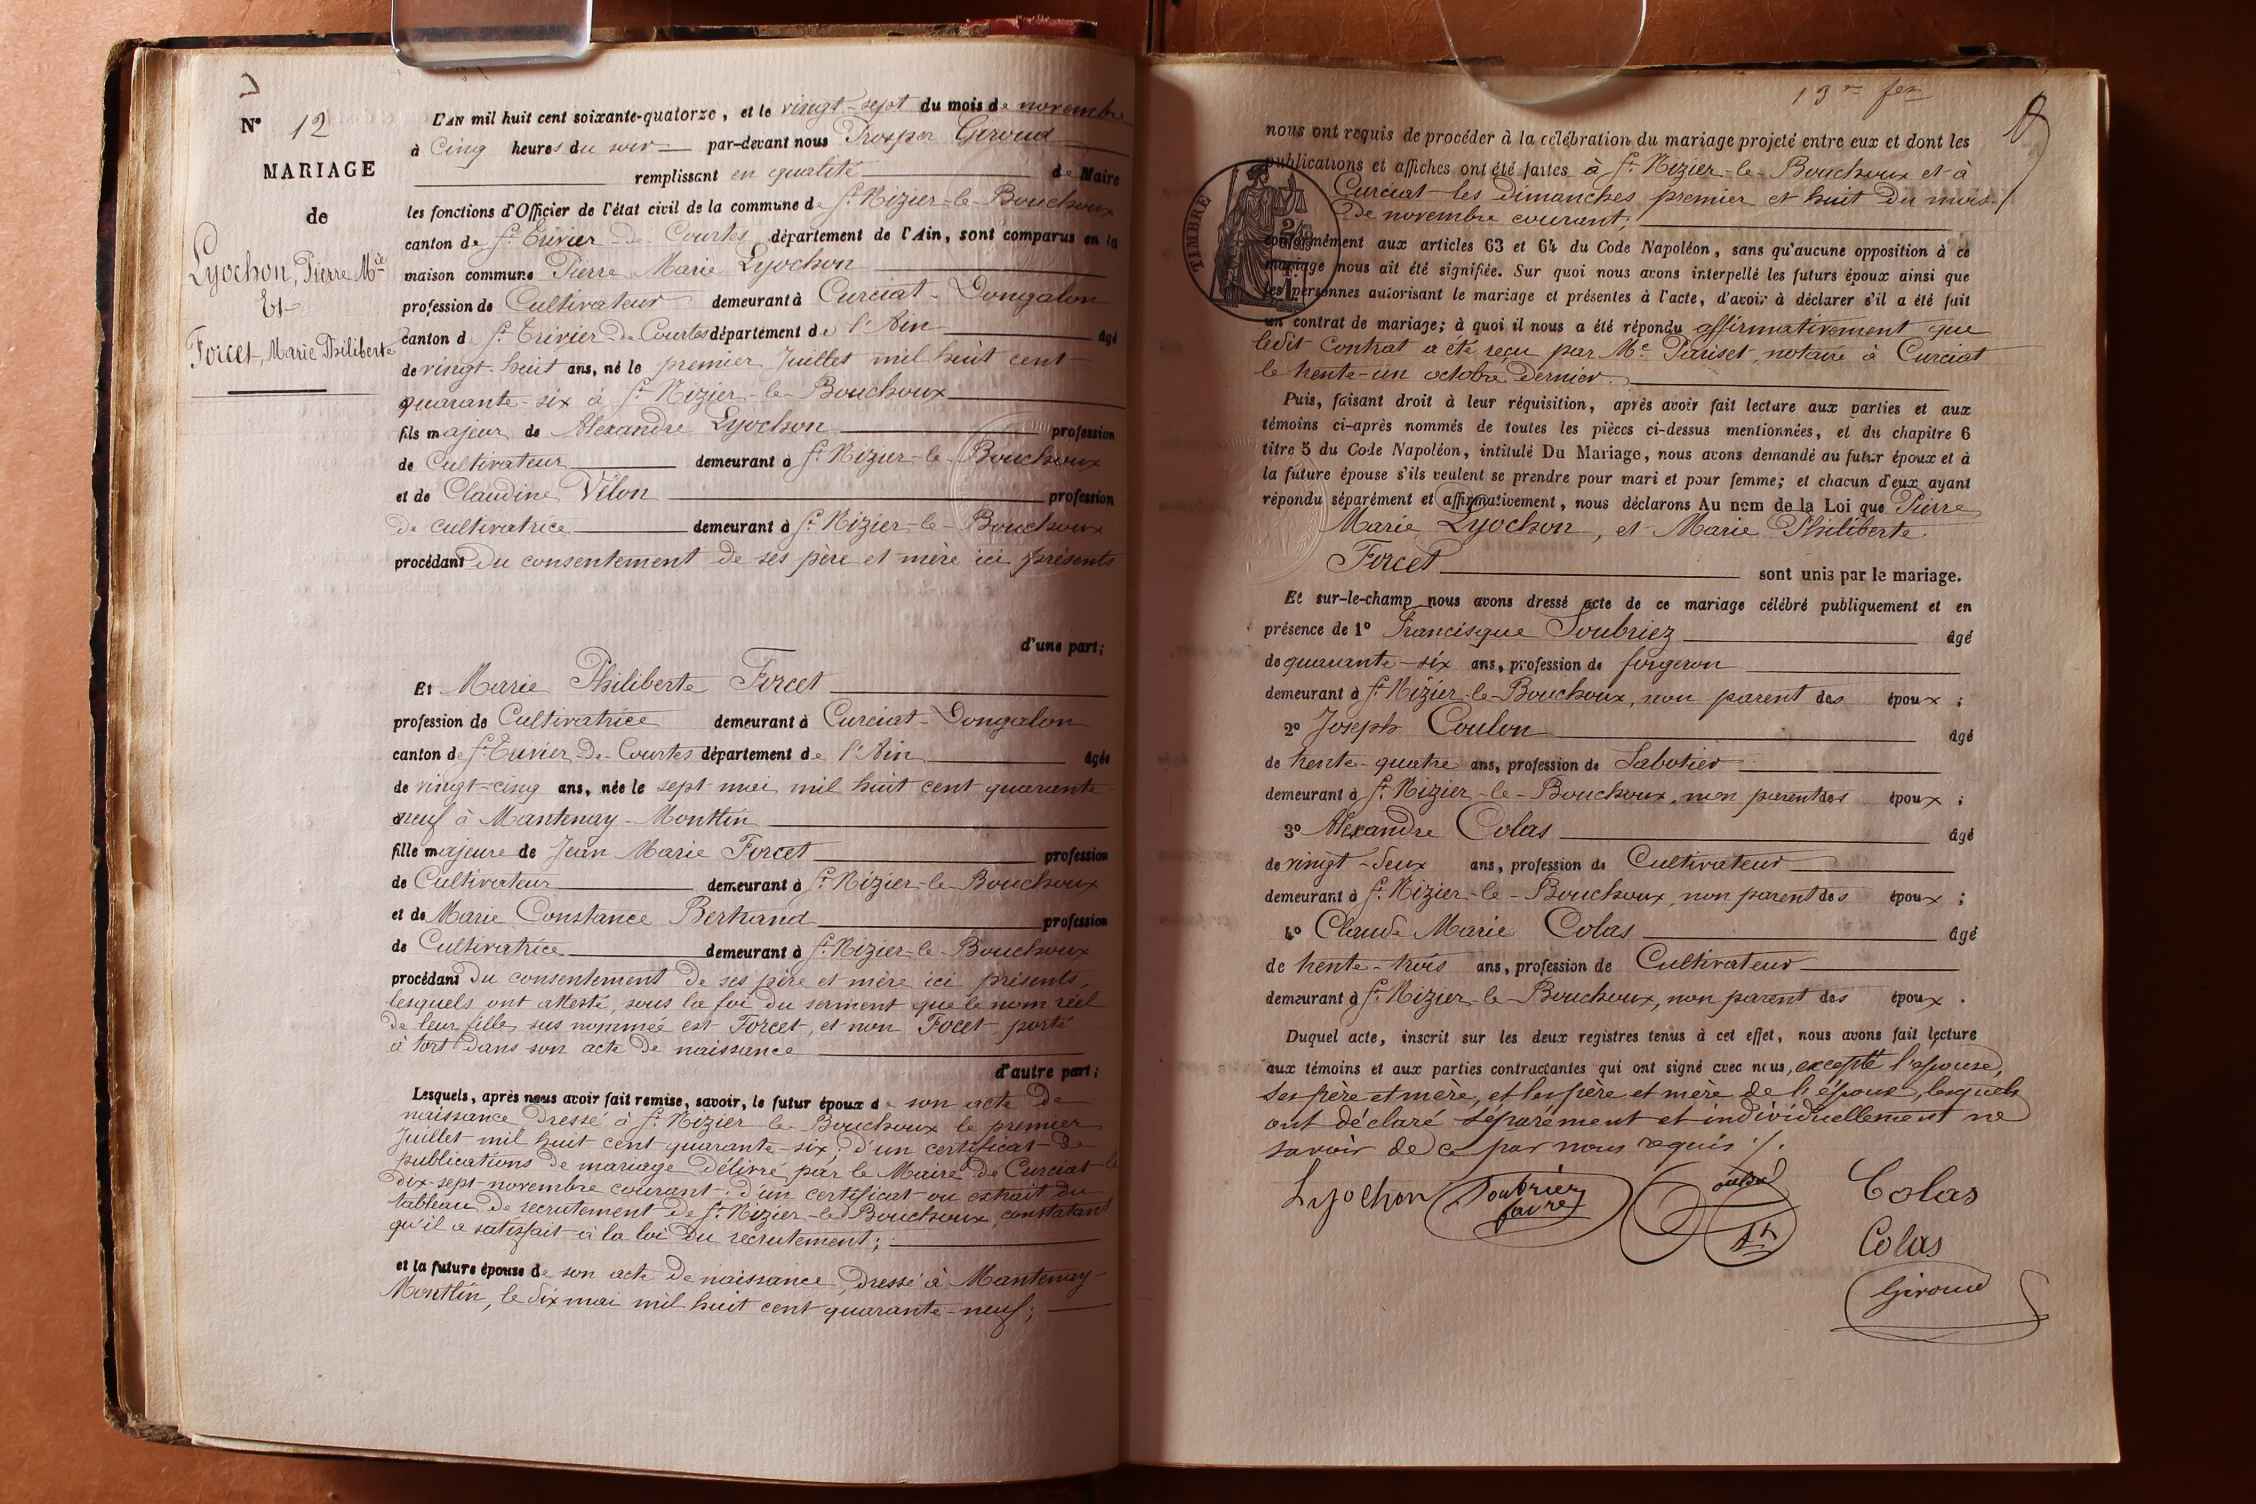 N° 12
MARIAGE
de
Lyochon, Pierre Mie
Et
Forcet, Marie Philiberte
L'AN mil huit cent soixante-quatorze, et le vingt-sept du mois de novembre
à Cinq heures du soir par-devant nous Prosper Giroud
remplissant en qualité de Maire
les fonctions d'Officier de l'état civil de la commune de St Nizier-le-Bouchoux
canton de St Trivier-de-Courtes département de l'Ain, sont comparus en la
maison commune Pierre Marie Lyochon
profession de Cultivateur demeurant à Curciat-Dongalon
canton de St Trivier-de-Courtes département de l'Ain âgé
de vingt-huit ans, né le premier Juillet mil huit cent
quarante-six à St Nizier-le-Bouchoux
fils majeur de Alexandre Lyochon profession
de Cultivateur demeurant à St Nizier-le-Bouchoux
et de Claudine Vélon profession
de cultivatrice demeurant à St Nizier-le-Bouchoux
procédant du consentement de ses père et mère ici présents
d'une part;
Et Marie Philiberte Forcet
profession de Cultivatrice demeurant à Curciat-Dongalon
canton de St Trivier-de-Courtes département de l'Ain âgée
de vingt-cinq ans, née le sept mai mil huit cent quarante
neuf à Mantenay-Montlin
fille majeure de Jean Marie Forcet profession
de Cultivateur demeurant à St Nizier-le-Bouchoux
et de Marie Constance Bertrand profession
de Cultivatrice demeurant à St Nizier-le-Bouchoux
procédant du consentement de ses père et mère ici présents,
lesquels ont attesté, sous la foi du serment que le nom réel
de leur fille sus nommée est Forcet, et non Focet porté
à tort dans son acte de naissance
d'autre part;
Lesquels, après nous avoir fait remise, savoir, le futur époux de son acte de
naissance dressé à St Nizier-le-Bouchoux le premier
Juillet mil huit cent quarante-six; d'un certificat de
publications de mariage délivré par le Maire de Curciat le
dix-sept novembre courant; d'un certificat ou extrait du
tableau de recrutement de St Nizier-le-Bouchoux, constatant
qu'il a satisfait à la loi du recrutement;
et la future épouse de son acte de naissance, dressé à Mantenay-
Montlin, le dix mai mil huit cent quarante-neuf;
nous ont requis de procéder à la célébration du mariage projeté entre eux et dont les
publications et affiches ont été faites à St Nizier-le-Bouchoux et à
Curciat les dimanches premier et huit du mois
de novembre courant;
TIMBRE
conformément aux articles 63 et 64 du Code Napoléon, sans qu'aucune opposition à ce
mariage nous ait été signifiée. Sur quoi nous avons interpellé les futurs époux ainsi que
les personnes autorisant le mariage et présentes à l'acte, d'avoir à déclarer s'il a été fait
un contrat de mariage; à quoi il nous a été répondu affirmativement que
ledit Contrat a été reçu par Me Pariset notaire à Curciat
le trente-un octobre dernier.
Puis, faisant droit à leur réquisition, après avoir fait lecture aux parties et aux
témoins ci-après nommés de toutes les pièces ci-dessus mentionnées, et du chapitre 6
titre 5 du Code Napoléon, intitulé Du Mariage, nous avons demandé au futur époux et à
la future épouse s'ils veulent se prendre pour mari et pour femme; et chacun d'eux ayant
répondu séparément et affirmativement, nous déclarons Au nom de la Loi que Pierre
Marie Lyochon, et Marie Philiberte
Forcet sont unis par le mariage.
Et sur-le-champ nous avons dressé acte de ce mariage célébré publiquement et en
présence de 1° Francisque Soubriez âgé
de quarante-six ans, profession de forgeron
demeurant à St Nizier-le-Bouchoux, non parent des époux;
2° Joseph Coulon âgé
de trente-quatre ans, profession de Sabotier
demeurant à St Nizier-le-Bouchoux, non parent des époux;
3° Alexandre Colas âgé
de vingt-deux ans, profession de Cultivateur
demeurant à St Nizier-le-Bouchoux, non parent des époux;
4° Claude Marie Colas âgé
de trente-trois ans, profession de Cultivateur
demeurant à St Nizier-le-Bouchoux, non parent des époux.
Duquel acte, inscrit sur les deux registres tenus à cet effet, nous avons fait lecture
aux témoins et aux parties contractantes qui ont signé avec nous, excepté l'épouse,
ses père et mère, et les père et mère de l'époux, lesquels
ont déclaré séparément et individuellement ne
savoir de ce par nous requis ./.
Lyochon Soubriez
favre
Colas
Colas
Giroud